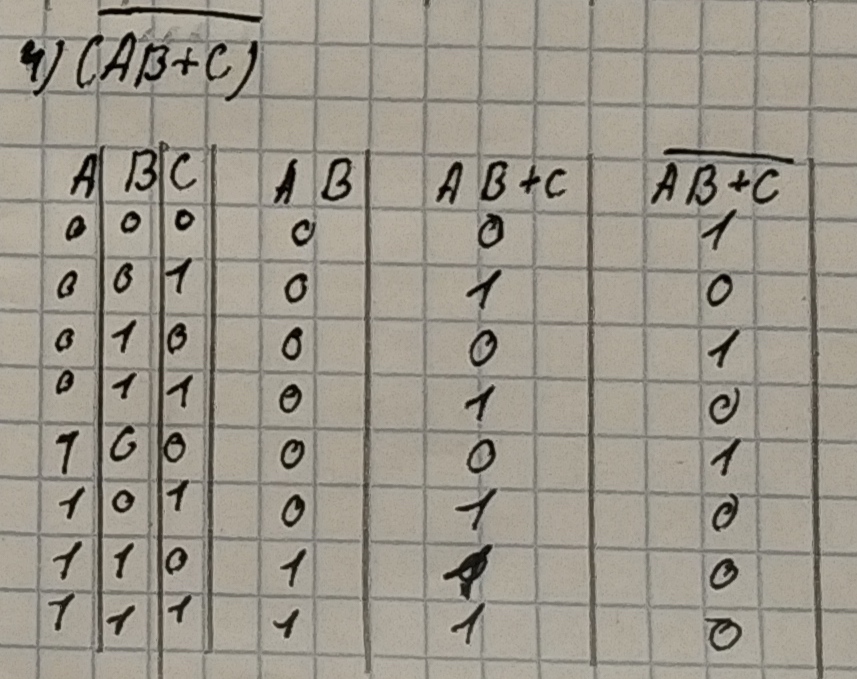 4) (A̅B̅+̅C̅)
A B C A B A B + C A̅ B̅ +̅ C̅
0 0 0 0 0 1
0 0 1 0 1 0
0 1 0 0 0 1
0 1 1 0 1 0
1 0 0 0 0 1
1 0 1 0 1 0
1 1 0 1 1 0
1 1 1 1 1 0